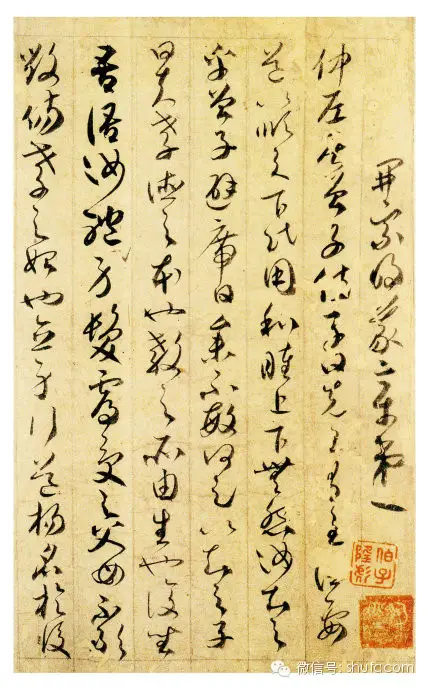 開宗明義章第一
仲尼居曾子侍子曰先王有至德要
道以順天下民用和睦上下無怨汝知之
乎曾子避席曰參不敏何足以知之子
曰夫孝德之本也教之所由生也復坐
吾語汝體身髮膚受之父母不敢
毀傷孝之始也立身行道揚名於後
微信号: shufc_com